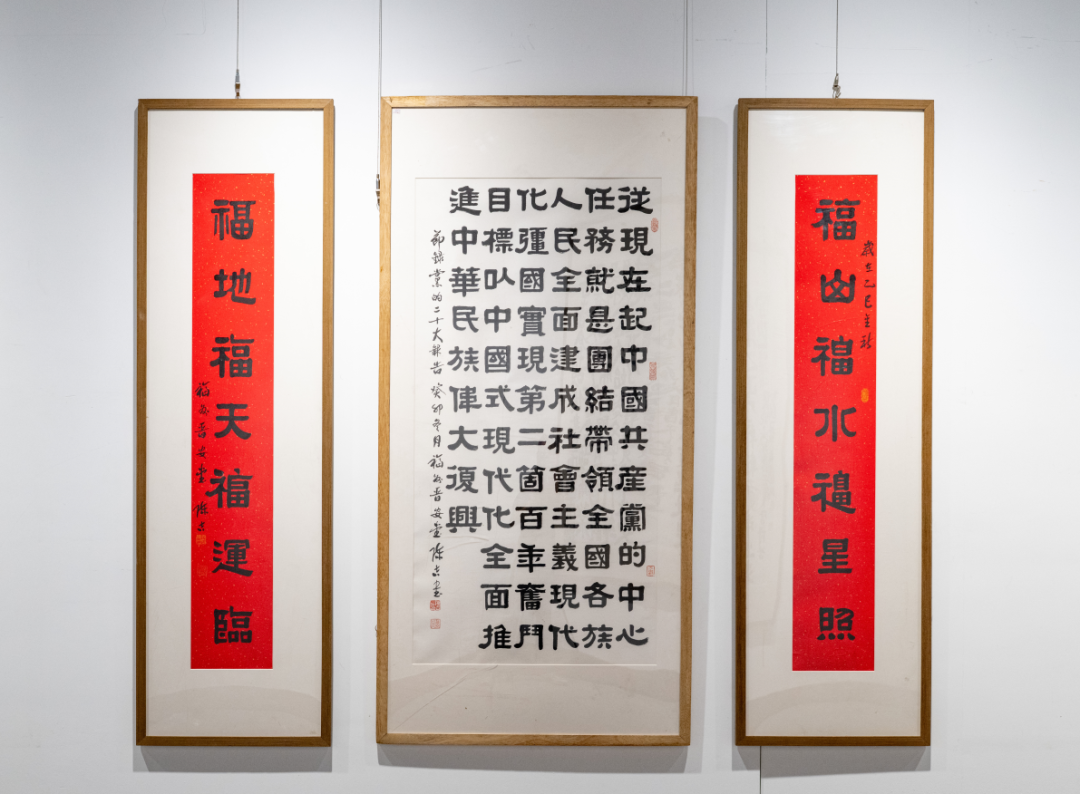 福山福水福星照
歲在乙巳金秋
從現在起中國共産黨的中心
任務就是團結帶領全國各族
人民全面建成社會主義現代
化彊國實現第二箇百年奮鬥
目標以中國式現代化全面推
進中華民族偉大復興
節錄黨的二十大報告 癸卯冬月 福州晉安
福地福天福運臨
福州晉安